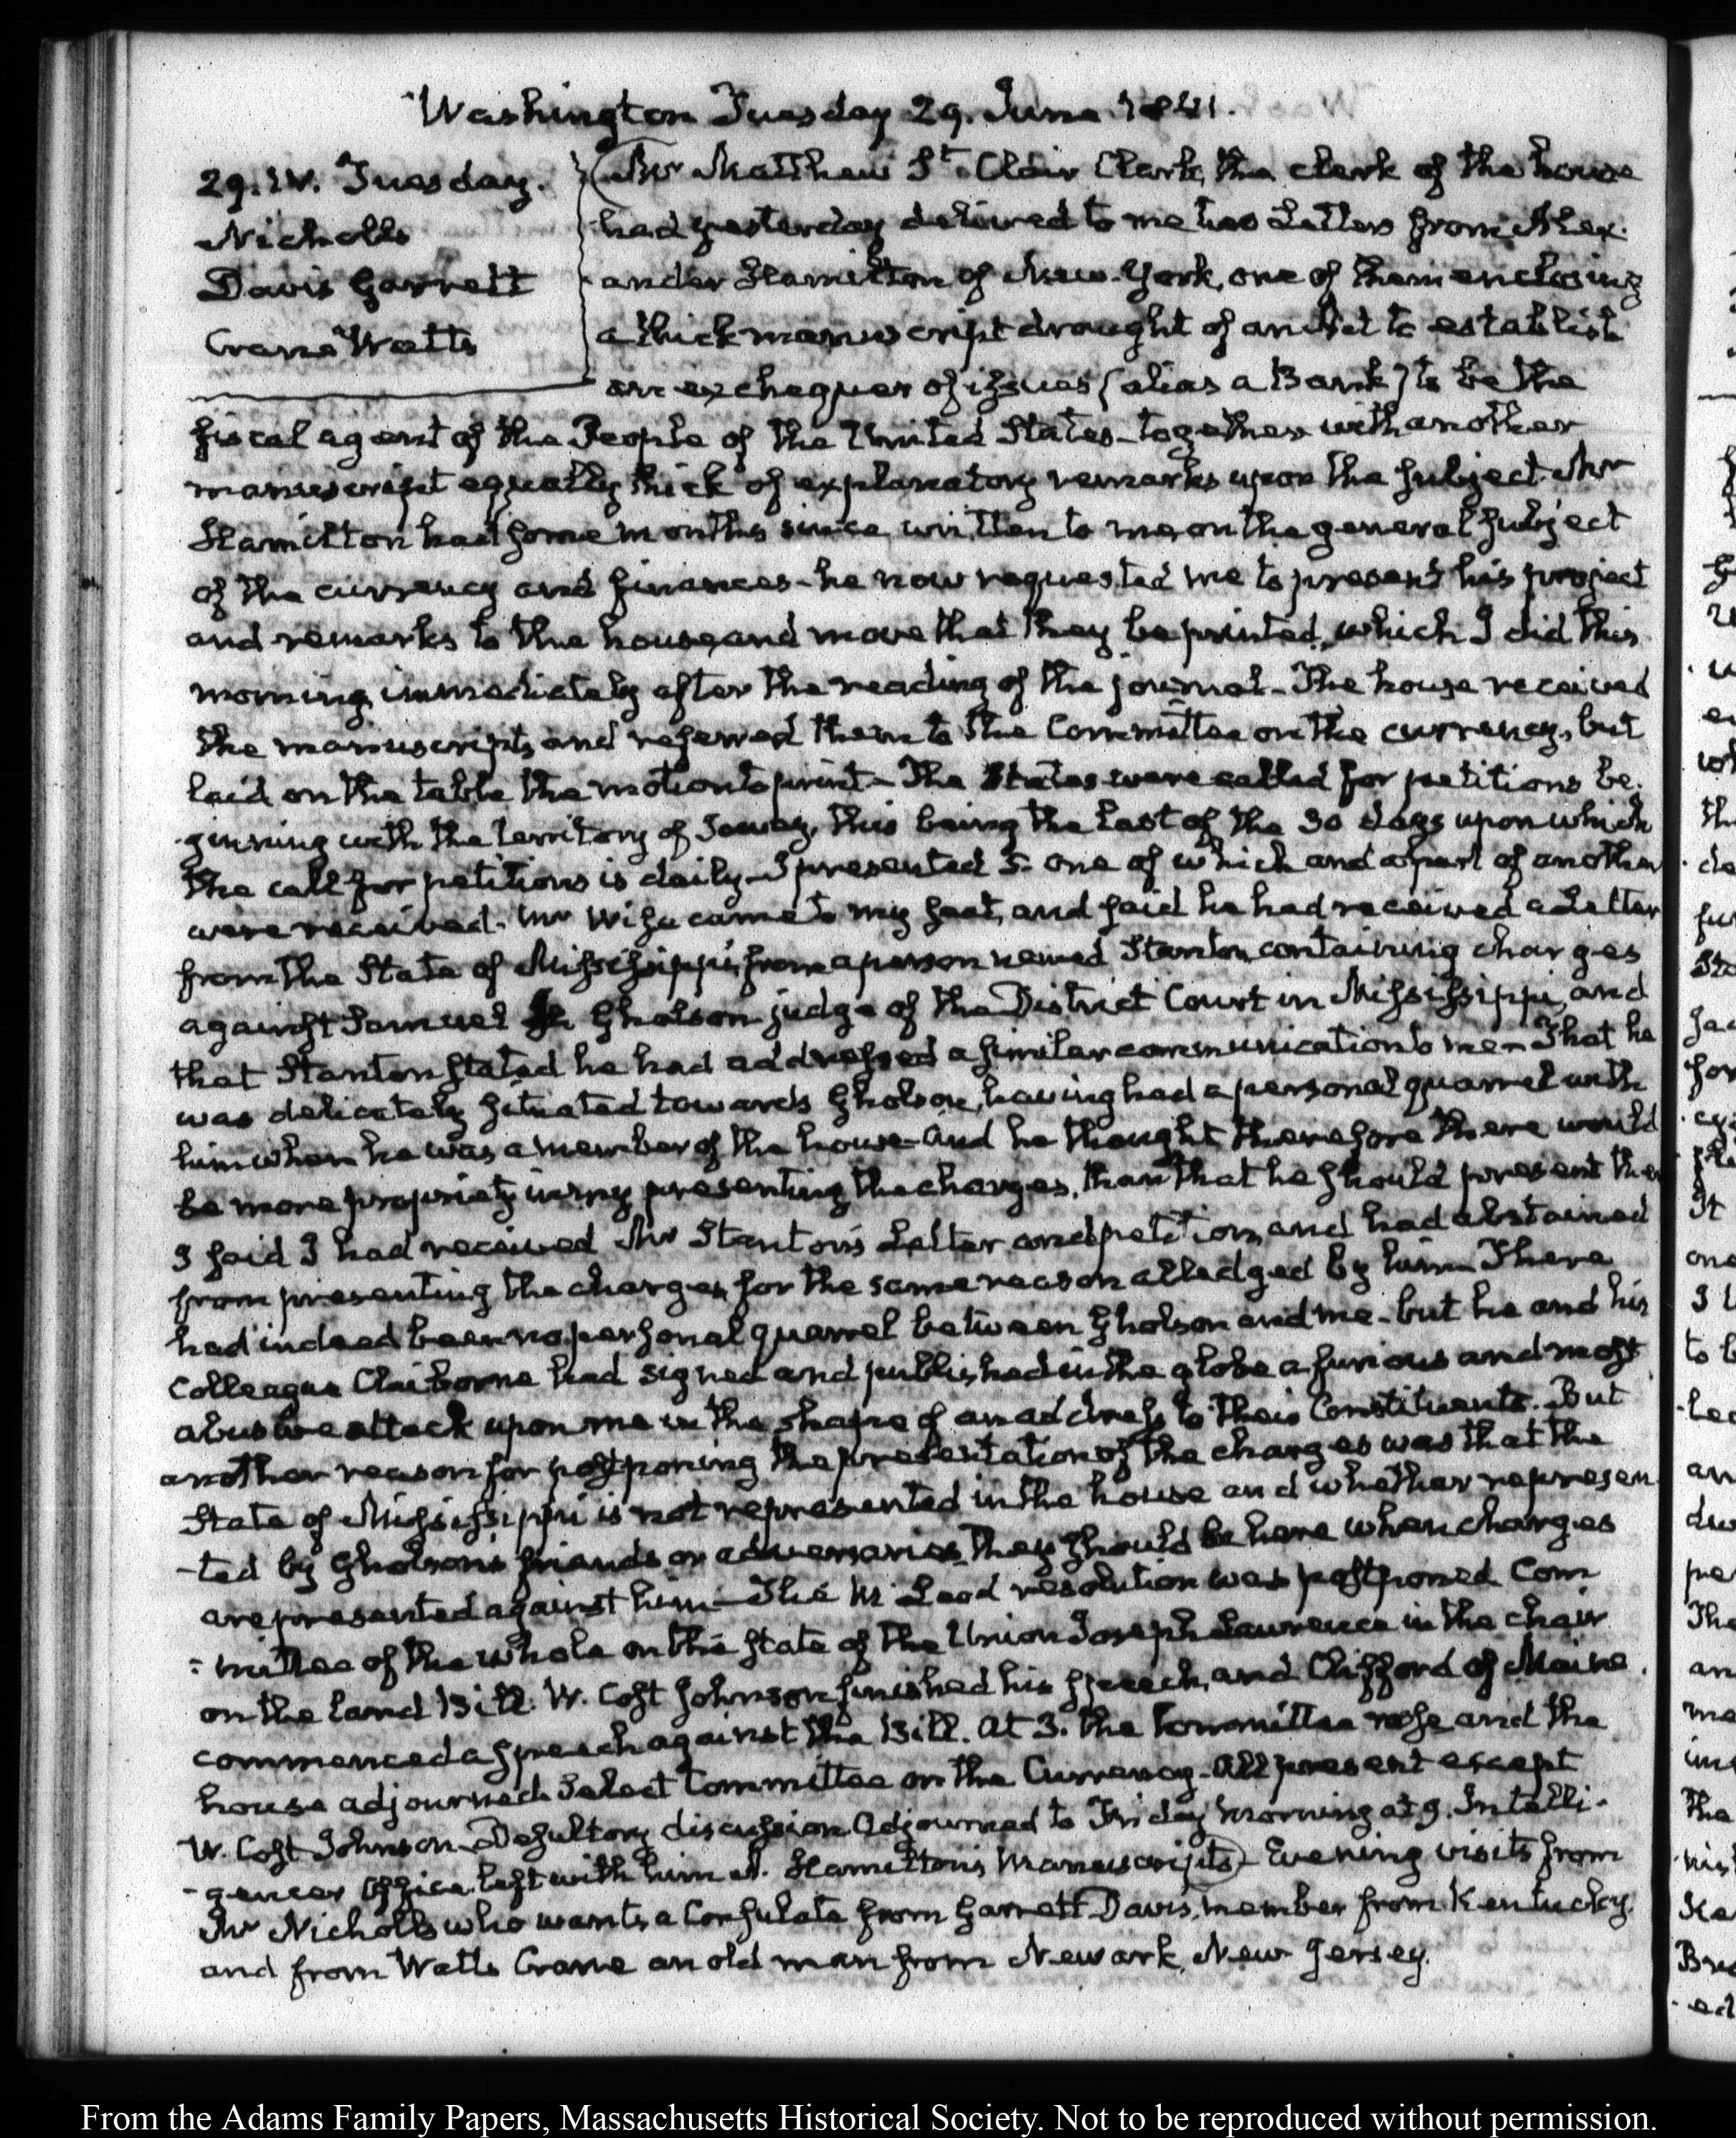 Washington Tuesday 29. June 1841.
29. IV. Tuesday.
Nicholls
Davis Garrett
Crane Watts
Mr Matthew St. Clair Clark, the clerk of the house
had yesterday delivered to me two Letters from Alex-
ander Hamilton of New-York, one of them enclosing
a thick manuscript drought of an Act to establish
an exchequer of issues (alias a Bank) to be the
fiscal agent of the People of the United States—together with another
manuscript equally thick of explanatory remarks upon the subject. Mr
Hamilton had some months since written to me on the general subject
of the currency and finances—he now requested me to present his project
and remarks to the house, and move that they be printed, which I did this
morning, immediately after the reading of the journal—The house received
the manuscripts, and referred them to the Committee on the currency, but
laid on the table the motion to print—The States were called for petitions be-
-ginning with the territory of Ioway, this being the last of the 30 days upon which
the call for petitions is daily—I presented 5. one of which and a part of another
were received. Mr Wise came to my seat, and said he had received a Letter
from the State of Mississippi, from a person named Stanton, containing charges
against Samuel J. Gholson judge of the District Court in Mississippi, and
that Stanton stated he had addressed a similar communication to me—That he
was delicately situated towards Gholson, having had a personal quarrel with
him when he was a member of the house—and he thought therefore there would
be more propriety in my presenting the charges, than that he should present them
I said I had received Mr Stanton's Letter and petition, and had abstained
from presenting the charges, for the same reason alledged by him—There
had indeed been no personal quarrel between Gholson and me—but he and his
Colleague Claiborne had signed and published in the globe a furious and most
abusive attack upon me in the shape of an address to their Constituents. But
another reason for postponing the presentation of the charges was that the
State of Mississippi is not represented in the house and whether represen-
-ted by Gholson's friends or adversaries, they should be here when charges
are presented against him—The Mc Leod resolution was postponed. Com-
-mittee of the whole on the state of the Union Joseph Lawrence in the chair
on the land Bill. W. Cost Johnson finished his speech, and Clifford of Maine
commenced a speech against the Bill. At 3. the Committee rose and the
house adjourned. Select Committee on the Currency—All present except
W. Cost Johnson—Desultory discussion. Adjourned to Friday morning at 9. Intelli-
-gencer Office. left with him A. Hamilton's Manuscripts)—Evening visits from
Mr Nicholls who wants a Consulate from Garrett Davis, member from Kentucky.
and from Watts Crane an old man from Newark, New Jersey.
From the Adams Family Papers, Massachusetts Historical Society. Not to be reproduced without permission.